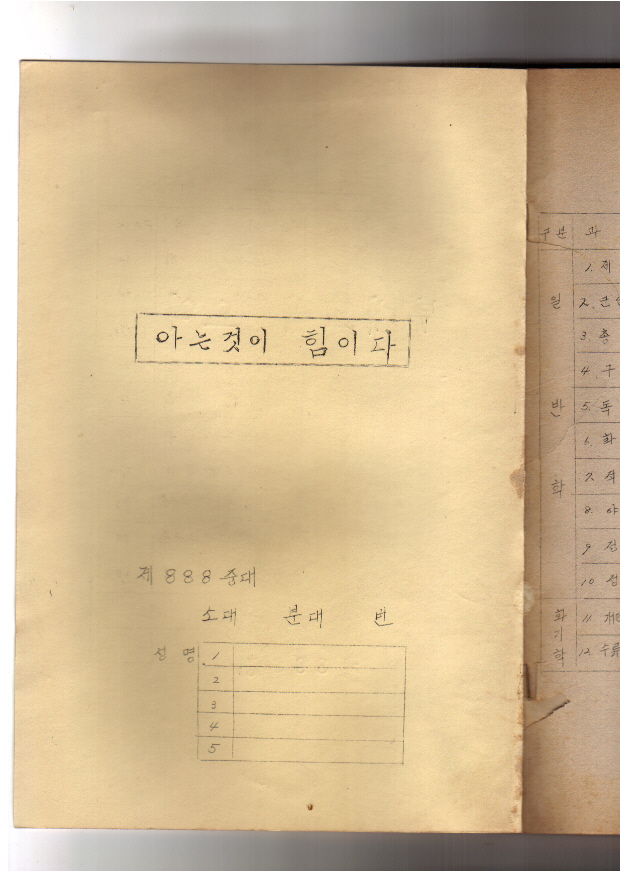 아는것이 힘이다
제 888 중대
소대 분대 번
성 명 1
2
3
4
5
구분 과
일반학
1. 제
2. 큰
3. 총
4. 구
5. 독
6. 화
7. 석
8. 야
9. 전
10
화기학
11
12. 수류